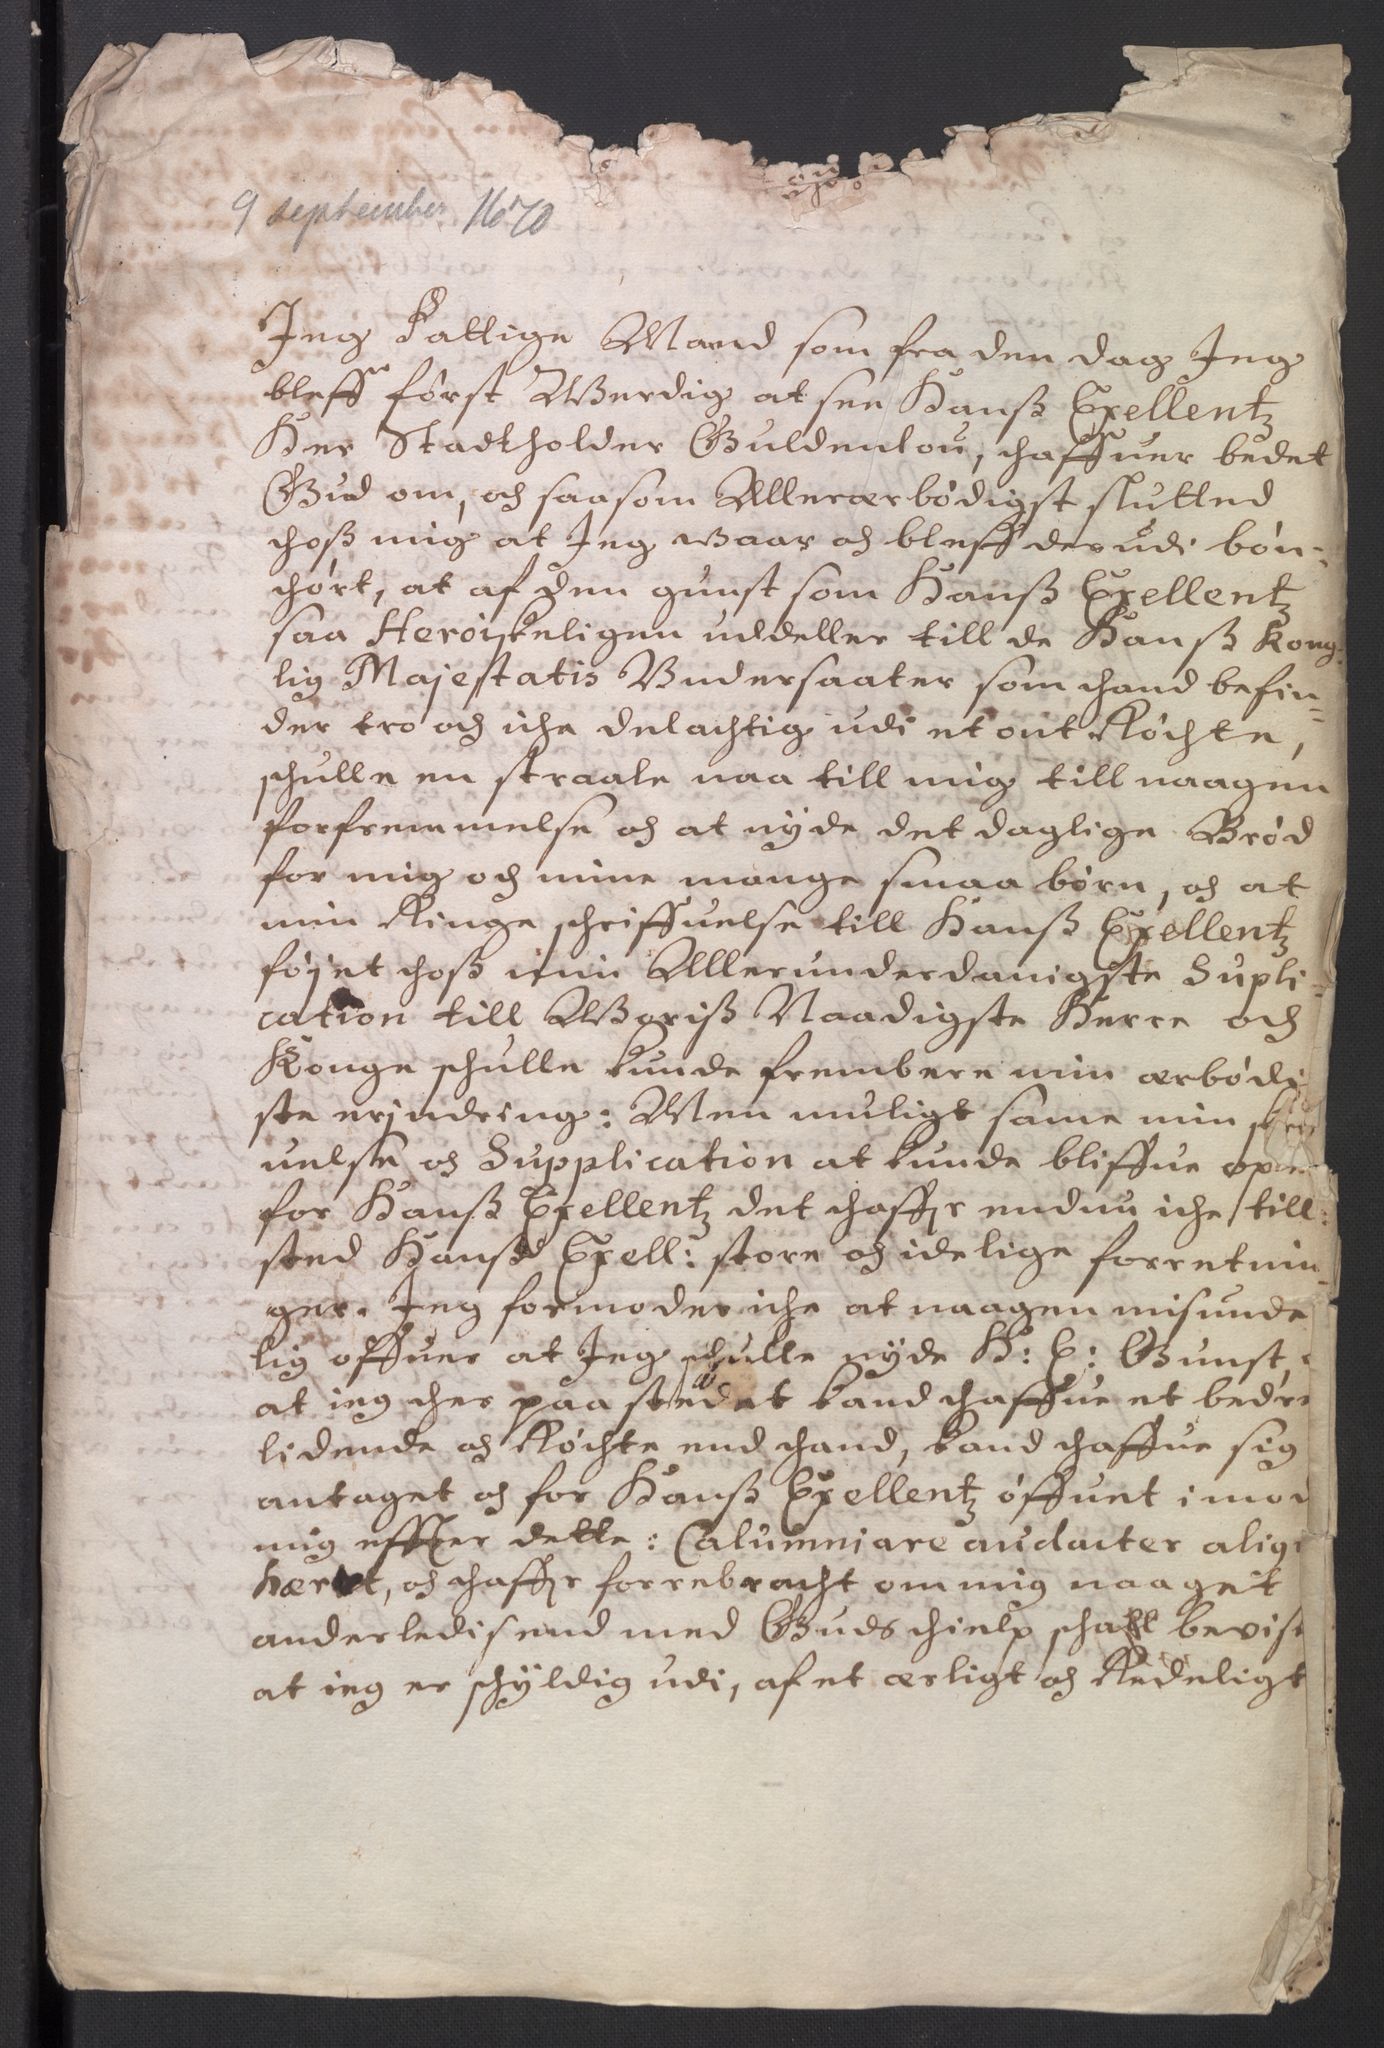 9 september 1670
Jeg Fattige Mand som fra den dag Jeg
bleff først Werdig at see Hanß Exellentz
Her Stadtholder Guldenlou, haffuer bedet
Gud om, och saasom Allerærbødigst slutted
hoß mig at Jeg waar och bleff der udi bøn-
hørt, at af den gunst som Hanß Exellentz
saa Heroiskeligen uddeller till de Hanß Kong:
lig Majestatis Vndersaater som hand befin-
der tro och iche delachtig udi et ont Røchte,
schulle en straale naa till mig till naagen
forfremmelse och at nyde det daglige Brød
for mig och mine mange smaa børn, och at
min Ringe schriffuelse till Hanß Exellentz
føjet hoß min Allerunderdanigste Supli-
cation till Woriß Naadigste Herre och
Konge schulle kunde frembere min ærbødi
ste erindring: Men muligt same min
uelse och Supplication at kunde bliffue
for Hanß Exellentz det haffr endnu iche till:
sted Hanß Exell: store och idelige forretnin-
ger. Jeg formoder iche at naagen misunde
lig offuer at Jeg schulle nyde H: E: Gunst,
at ieg her paa stedet kand haffue et bedre
lidende och Røchte end hand, kand haffue sig
antaget och for Hanß Exellentz øffuet imod
mig effter dette: Calumniare audacter aliqu
hæret, och haffr forrebracht om mig naaget
anderledis end med Guds hielp schall bevise
at ieg er schyldig udi, af et ærligt och Redeligt